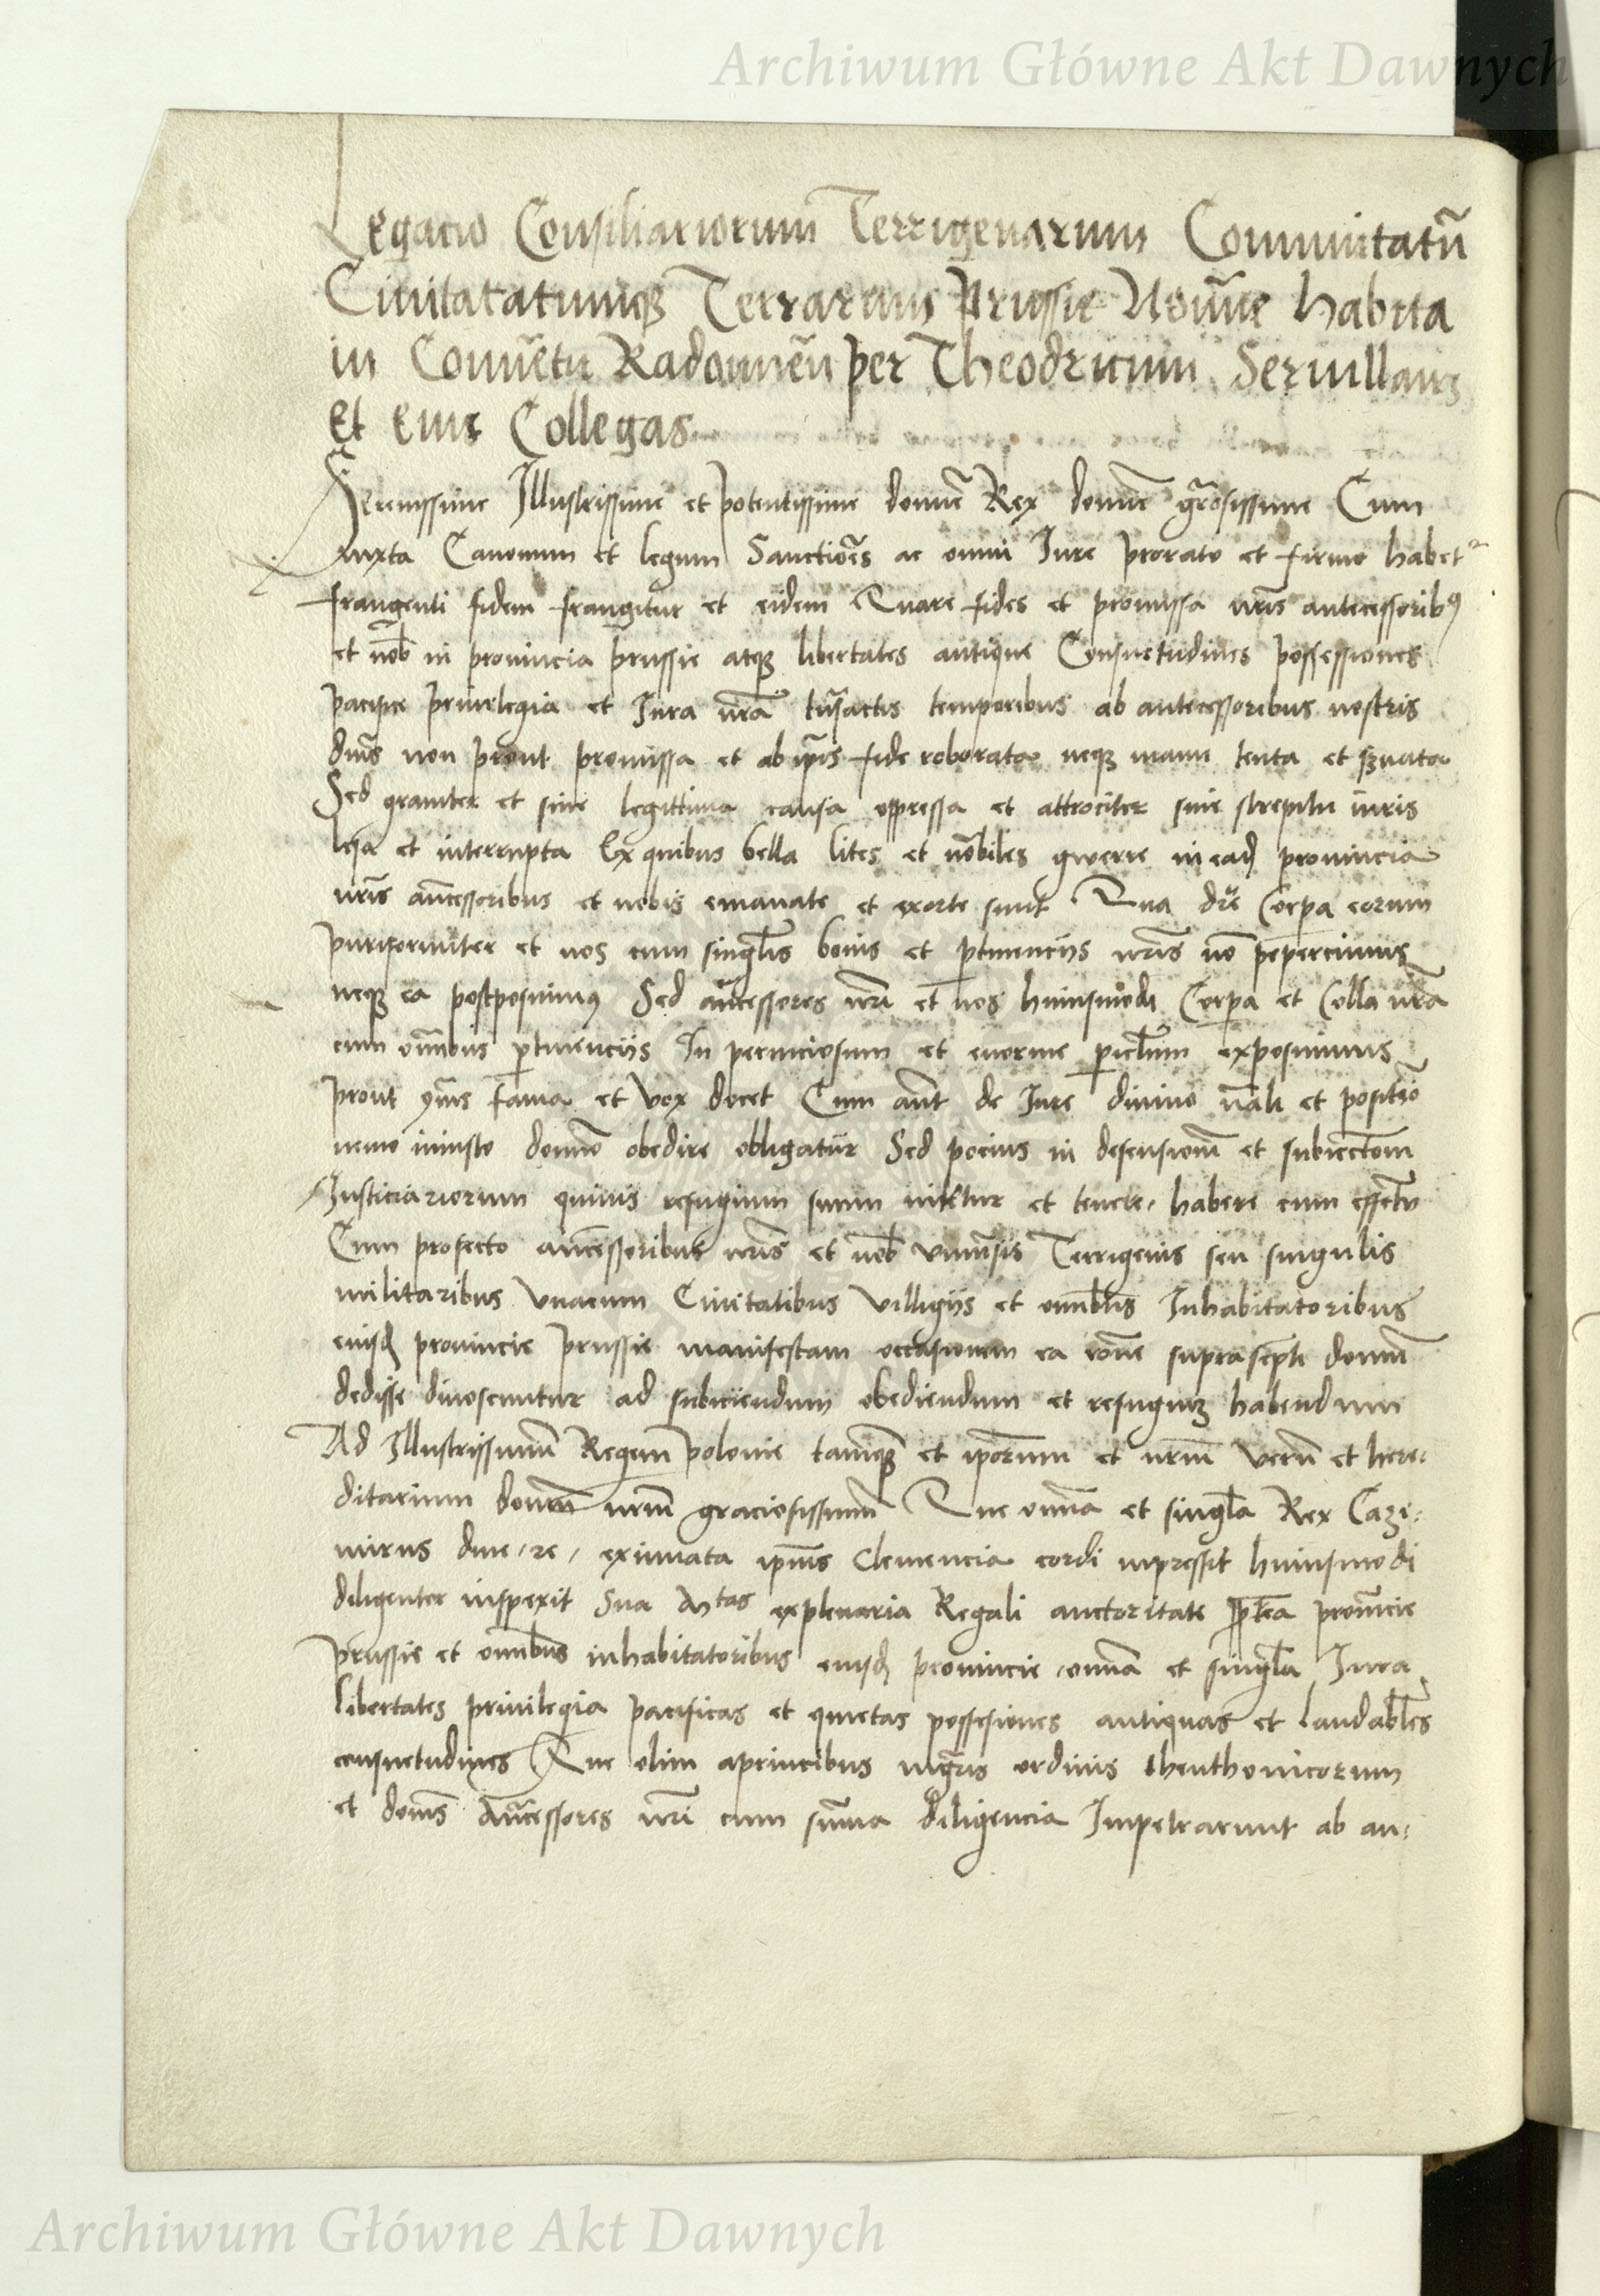 Archiwum Główne Akt Dawnych
Legacio Consiliariorum Terrigenarum Communitatū
Civitatatumqꝫ Terrarum Prussie Noīne habita
in Conuētu Radomieñ per Theodricum Seruillanis
Et Eius Collegas
Serenissime Illustrissime et potentissime domīe Rex domīe grāosissime Cum
Iuxta Canonum et legum Sanctiōēs ac omni Iure prorato et firmo habet᷑
frangenti fidem frangitur et eidem Quare fides et promissa nrīs antecessoribꝰ
et nōb in prouincia prussie atqꝫ libertates antique Consuetudines possessiones
pacifice priuilegia et Iura nrā trāsactis temporibus ab antecessoribus nostris
dnīs non prout promissa et ab ip̄is fide roborata neqꝫ manu tenta et ẜuata
Sed grauiter et sine legittima causa oppressa et attrociter sine strepitu iuris
lesa et interrupta Ex quibus bella lites et nōbiles gwerre in eadꝫ prouincia
nrīs añcessoribus et nobis emanate et exorte sunt Qua dr̄e Corpa eorum
puriformiter et nos cum singlīs bonis et ꝑtinenciis nrīs nō pepercimus
neqꝫ ea postposuimꝰ Sed añcessores nrī et nos huiusmodi Corpa et Colla nrā
cum oīnbus ꝑtinenciis In perniciosum et enorme ꝑiclūm exposuimus
prout ꝯīs fama et vox docet Cum aūt de Iure diuino nāli et positiō
nemo iniusto domīo obedire obligatur Sed pocius in defensionē et subiectōem
Justiciariorum quiuis refugium suum nititur et tenere habere cum effectu
Cum profecto añcessoribus nrīs et nōb vniuersis Terrigenis seu singulis
militaribus vnacum Ciuitatibus villigiis et omībus Inhabitatoribus
eiusdꝫ prouincie prussie manifestam occasionem ea rōne suprascptī domī
dedisse dinoscuntur ad subiciendum obediendum et refugiuꝫ habendum
Ad Illustrissimū Regem polonie tamqꝫ et ipōrum et nrīm verū et here-
ditarium domīm nrīm graciosissimū Que omīa et singlā Rex Cazi-
mirus diue re eximata ipīus Clemencia cordi inpressit huiusmodi
diligenter inspexit Sua Mtas explenaria Regali auctoritate p̄fea prouīcie
prussie et omībus inhabitatoribus eiusdꝫ prouincie omīa et singlā Iura
libertates priuilegia pacificas et quietas possesiones antiquas et laudabīles
consuetudines Que olim aprincibus mgrīs ordinis theuthonicorum
et domīs Añcessores nrī cum sūma diligencia Impetrarunt ab an-
Archiwum Główne Akt Dawnych